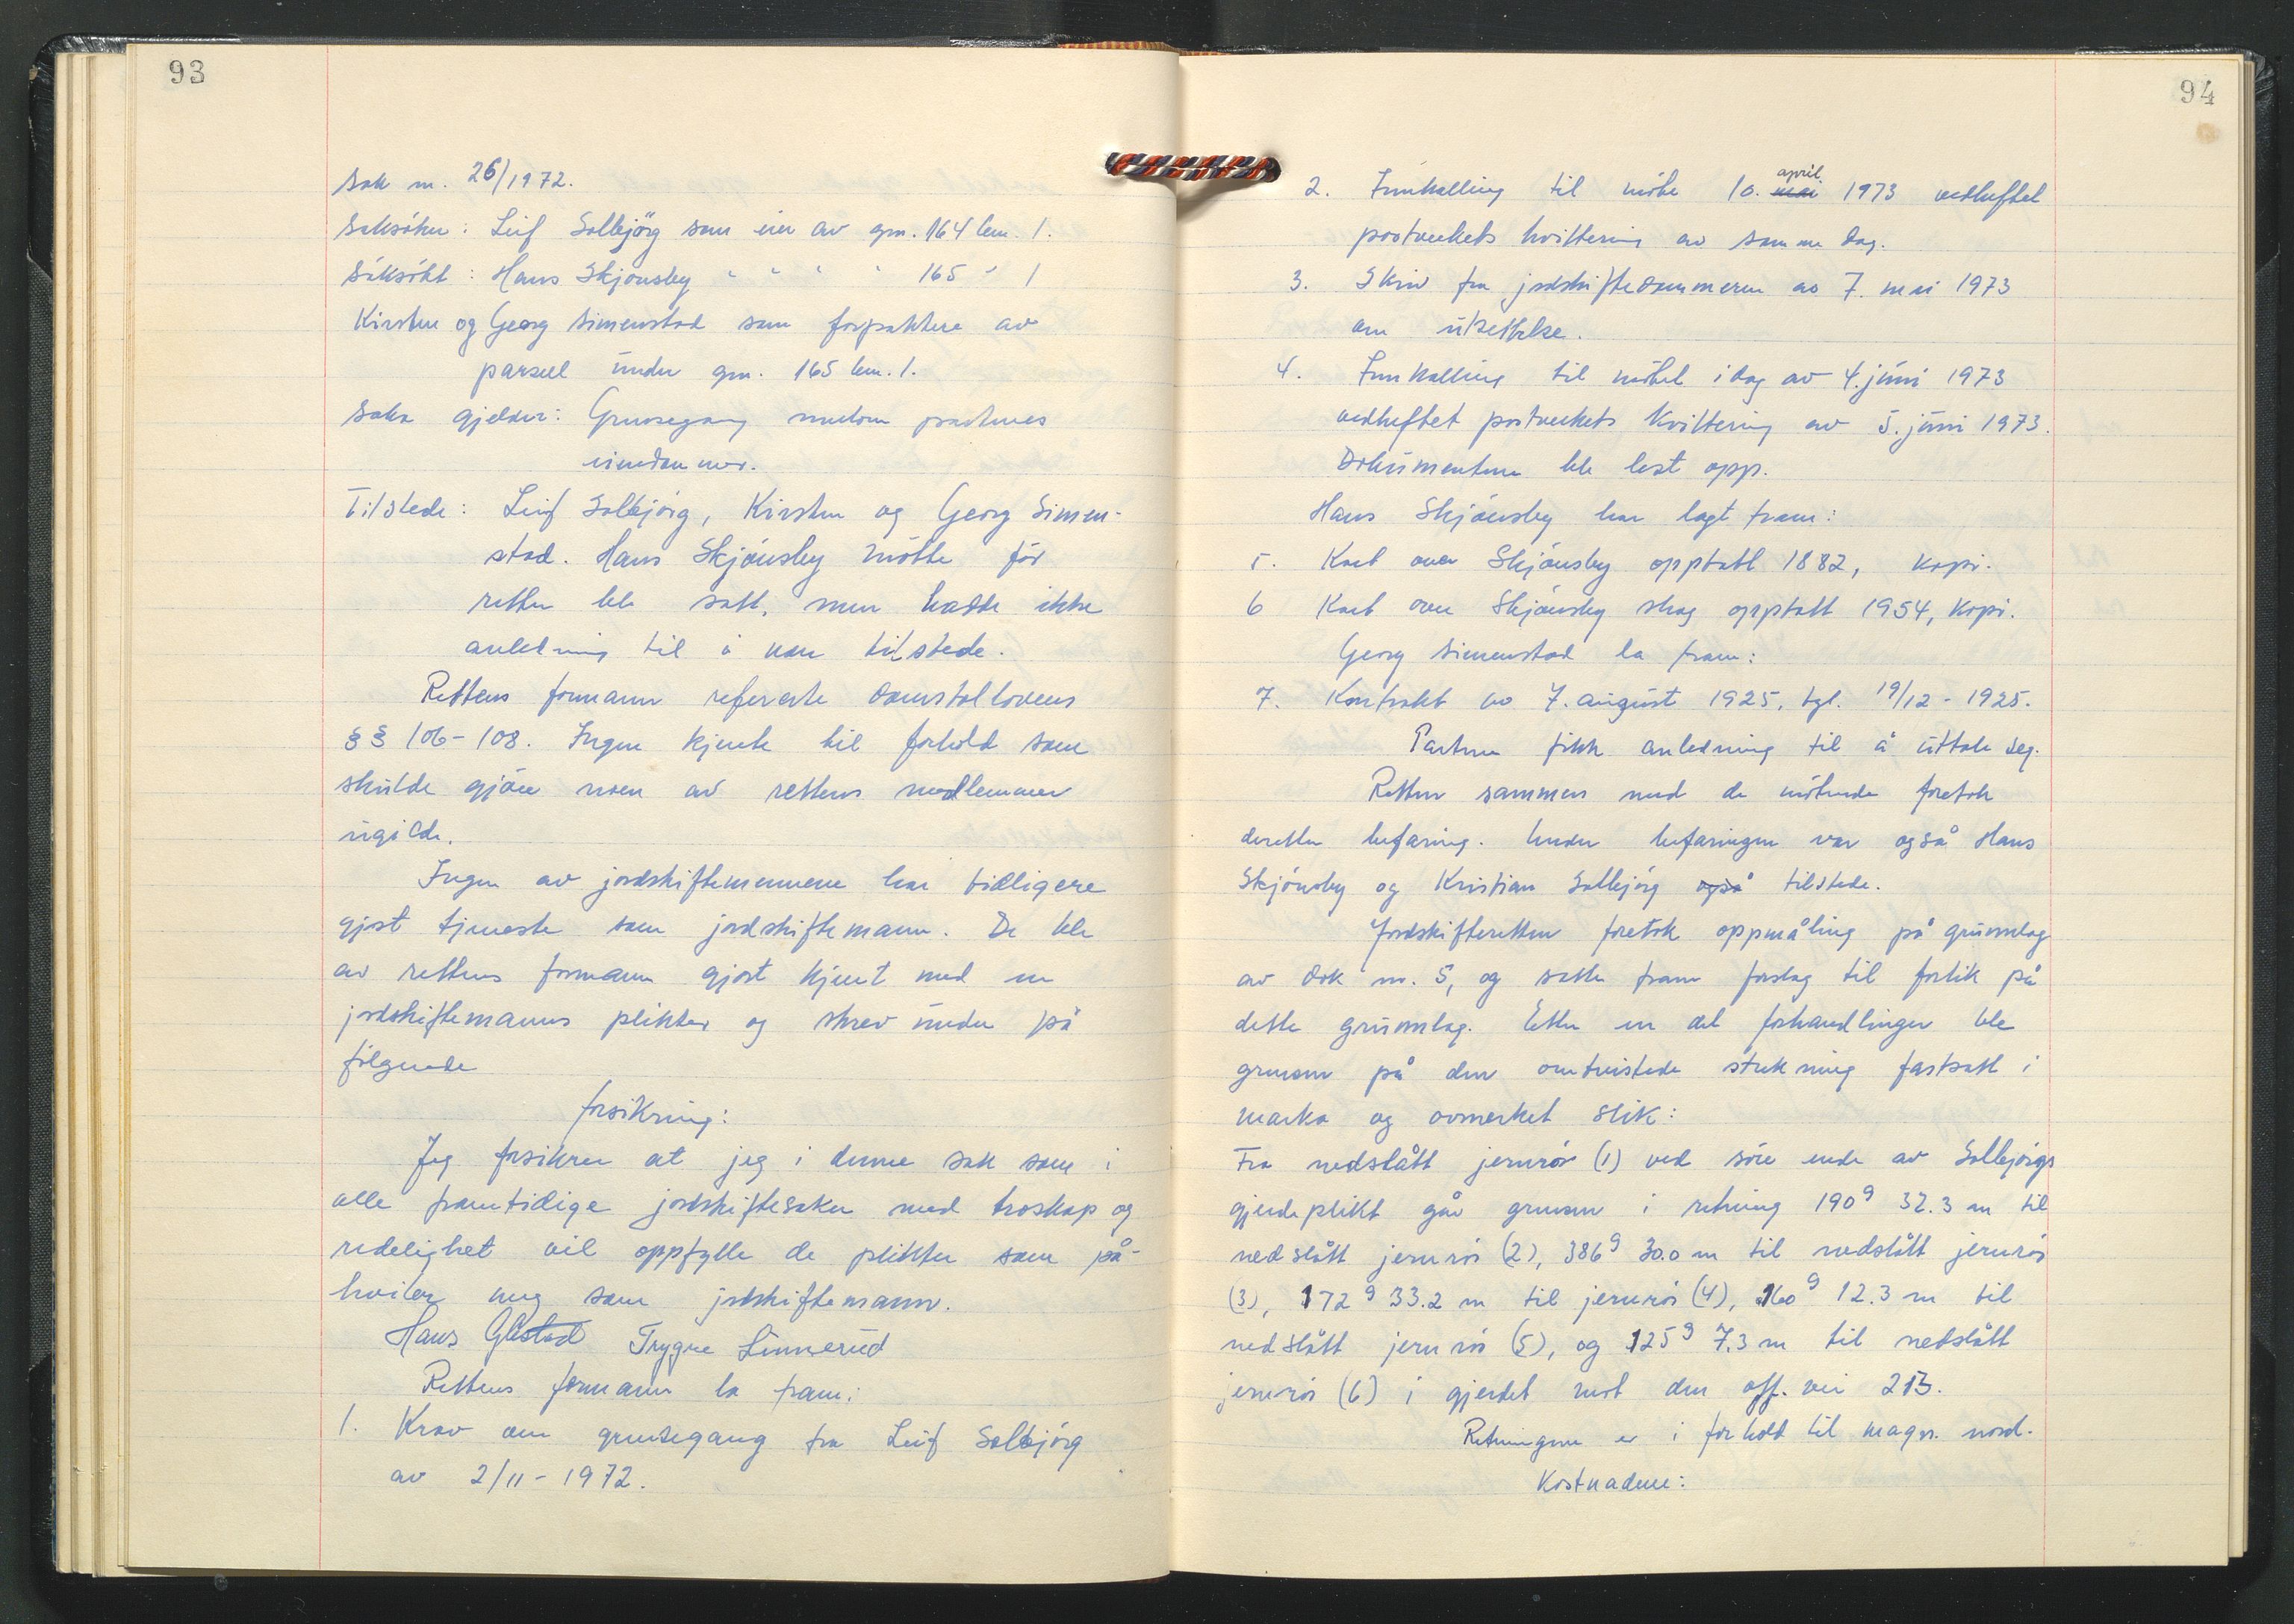 93
Sak nr. 26/1972.
Saksöker: Leif Solbjörg som eier av gnr. 164 bnr. 1.
Saksökt: Hans Skjönsby " " " " 165 " 1
Kirsten og Georg Simenstad som forpaktere av
parsell under gnr. 165 bnr. 1.
Saka gjelder: Grensegang mellom partenes
eiendommer.
Tilstede: Leif Solbjörg, Kirsten og Georg Simen-
stad. Hans Skjönsby møtte før
retten ble satt, men hadde ikke
anledning til å være tilstede.
Rettens formann refererte domstollovens
§§ 106-108. Ingen kjente til forhold som
skulde gjöre noen av rettens medlemmer
ugilde.
Ingen av jordskiftemennene har tidligere
gjort tjeneste som jordskiftemann. De ble
av rettens formann gjort kjent med en
jordskiftemanns plikter og skrev under på
fölgende
forsikring:
Jeg forsikrer at jeg i denne sak som i
alle framtidige jordskiftesaker med troskap og
redelighet vil oppfylle de plikter som på-
hviler meg som jordskiftemann.
Hans Glæstad Trygve Linnerud
Rettens formann la fram:
1. Krav om grensegang fra Leif Solbjörg
av 2/11-1972.
94
2. Innkalling til möte 10. mai april 1973 vedheftet
postverkets kvittering av samme dag.
3. Skriv fra jordskiftedommeren av 7. mai 1973
om utsettelse.
4. Innkalling til mötet i dag av 4. juni 1973
vedheftet postverkets kvittering av 5. juni 1973.
Dokumentene ble lest opp.
Hans Skjönsby har lagt fram:
5. Kart over Skjönsby opptatt 1882, kopi.
6 Kart over Skjönsby skog opptatt 1954, kopi.
Georg Simenstad la fram:
7. Kontrakt av 7. august 1925, tgl. 19/12-1925.
Partene fikk anledning til å uttale seg.
Retten sammen med de møtende foretok
deretter befaring. Under befaringen var også Hans
Skjönsby og Kristian Solbjörg også tilstede.
Jordskifteretten foretok oppmåling på grunnlag
av dok nr. 5, og satte fram forslag til forlik på
dette grunnlag. Etter en del forhandlinger ble
grensen på den omtvistede strekning fastsatt i
marka og avmerket slik:
Fra nedslått jernrör (1) ved söre ende av Solbjörgs
gjerdeplikt går grensen i retning 190g 32.3 m til
nedslått jernrör (2), 386g 30.0 m til nedslått jernrör
(3), 172g 33.2 m til jernrör (4), 160g 12.3 m til
nedslått jernrör (5), og 125g 7.3 m til nedslått
jernrör (6) i gjerdet mot den off. vei 213.
Retningene er i forhold til magn. nord.
Kostnadene: